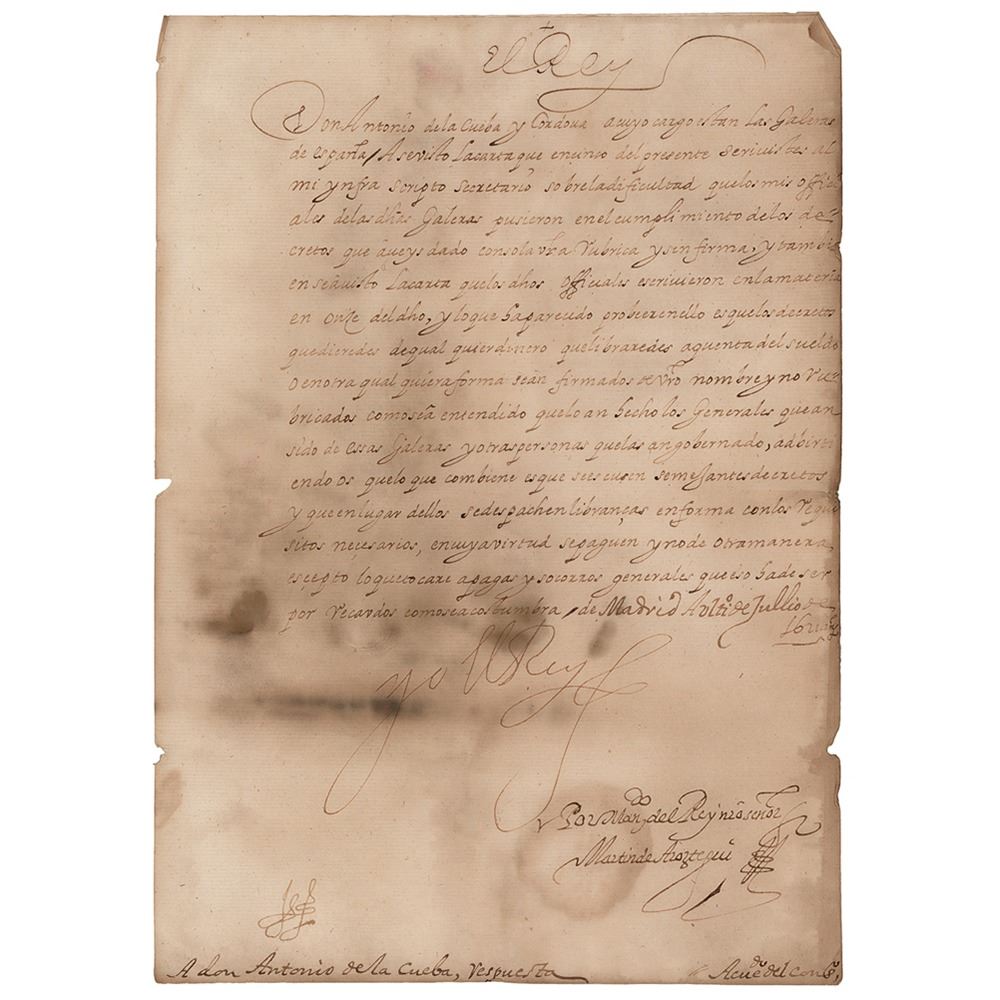 El Rey
Don Antonio dela Cueba y Cordoua acuyo cargo estan Las Galeras
de españa / Asevisto Lacarta que encinco del presente Seriuistes al
mi ynfra scripto secretario sobreladificultad quelos mis offici
ales delas dhas Galeras pusieron enel cumplimiento delos de=
cretos que aueys dado consola vra Rubrica ysin firma, y tambi
en seàvisto Lacarta quelos dhos officiales escriuieron enlamateria
en onze del dho, y loque haparecido probeerenello esquelosdecretos
quedieredes dequal quierdinero quelibraredes aquenta del sueldo
o enotra qual quiera forma seàn firmados de vro nombre y no Ru=
bricados comoseà entendido queloan hecho los Generales que an
sido de essas Galeras y otras personas quelas an gobernado, adbirti
endo os quelo que combiene esque seescusen semejantes decretos
y que en lugar dellos sedespachen libranças en forma con los Requi
sitos neçesarios, encuya virtud sepaguen y no de otra manera,
escepto loquetocare apagas y socorros generales que eso hade ser
por recavdos comoseacostumbra, de Madrid A ulto de Jullio de
yo el Rey
Por Mando del Rey nro señor
Martin de Aroztegui
A don Antonio de la Cueba, respuesta
Acuedo del Conso,